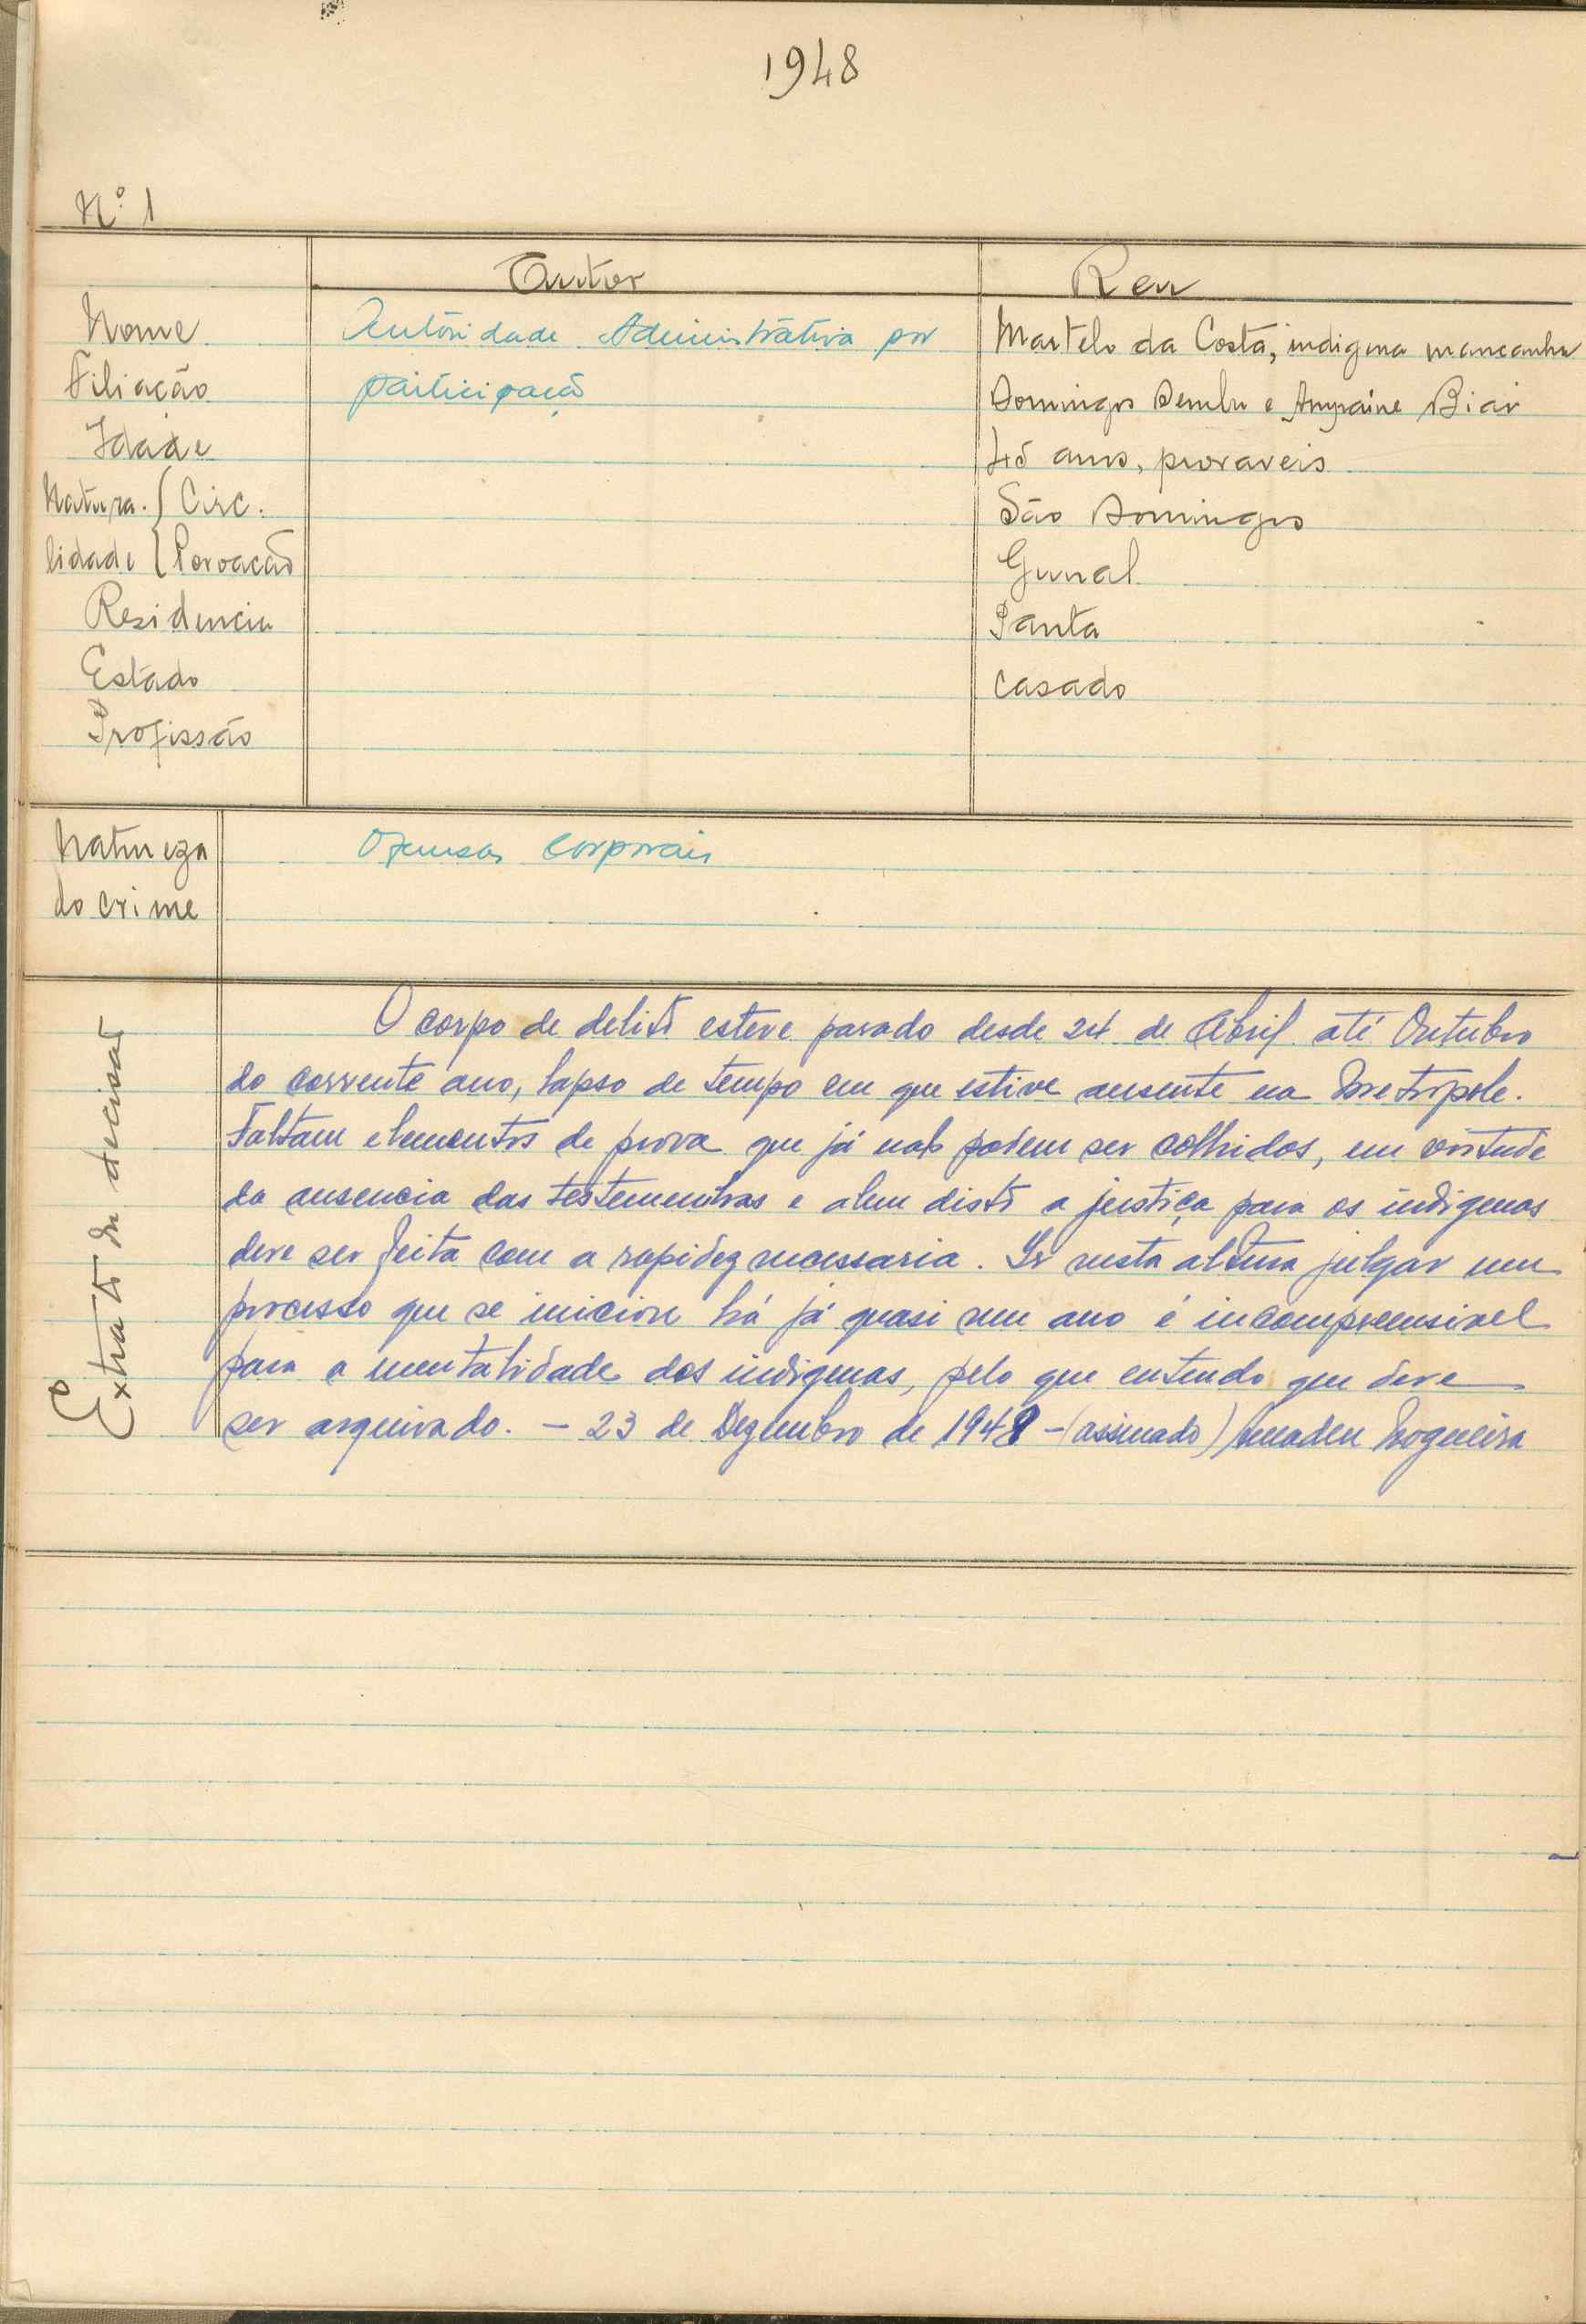 1948
Nº 1
Autor Reu
Nome Autoridade Administrativa por Martelo da Costa, indigena mancanha
Filiação participação Domingos Dembu e Biai
Idade 45 anos, provaveis
Natura. { Circ. São Domingos
lidade { Povoação Gunal
Residencia Santa
Estado casado
Profissão
Natureza Ofensas Corporais
do crime
Extrato da decisão
O corpo de delito esteve parado desde 24 de Abril até Outubro
do corrente ano, lapso de tempo em que estive ausente na Metropole.
Faltam elementos de prova que já não podem ser colhidos, em virtude
da ausencia das testemunhas e alem disto a justiça para os indigenas
deve ser feita com a rapidez necessaria. Ir nesta altura julgar um
processo que se iniciou há já quasi um ano é incompreensivel
para a mentalidade dos indigenas, pelo que entendo que deve
ser arquivado. - 23 de Dezembro de 1948 - (assinado) Amadeu Nogueira